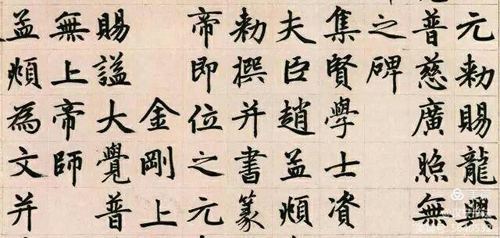 元勑賜龍興
普慈廣照無
之碑
集賢學士資
夫臣趙孟頫
勑撰并書篆
帝即位之元
金剛上
賜謚大覺普
無上帝師
孟頫為文并